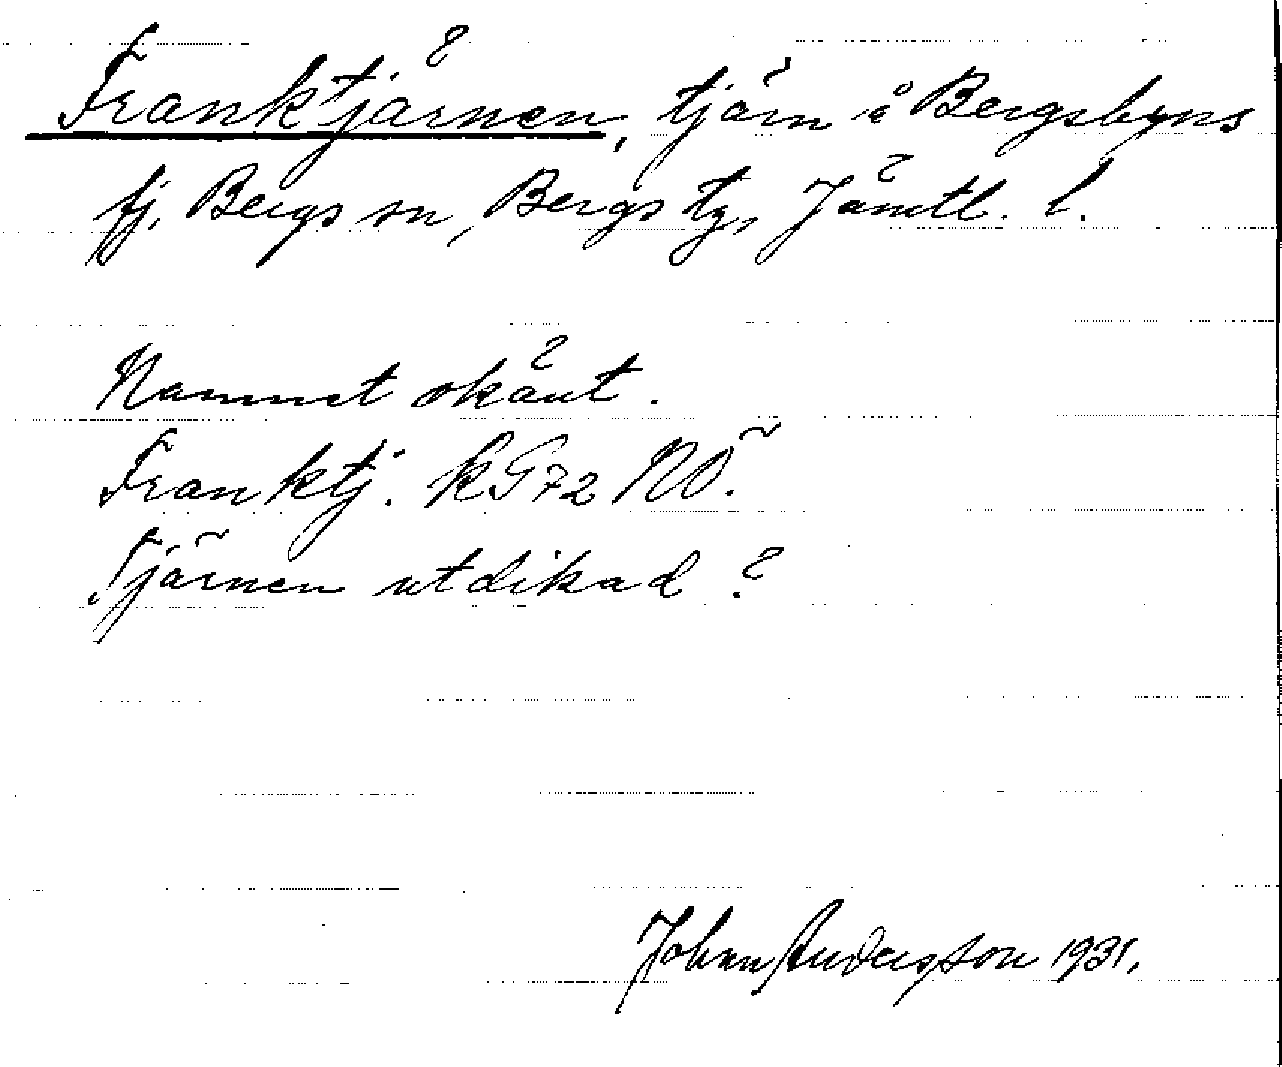 Franktjärnen, tjärn i Bergsbyns
fj. Bergs sn, Bergs tg, Jämtl. l.
Namnet okänt.
Franktj. kG72 NO.
Tjärnen utdikad?
Johan Andersson 1931.